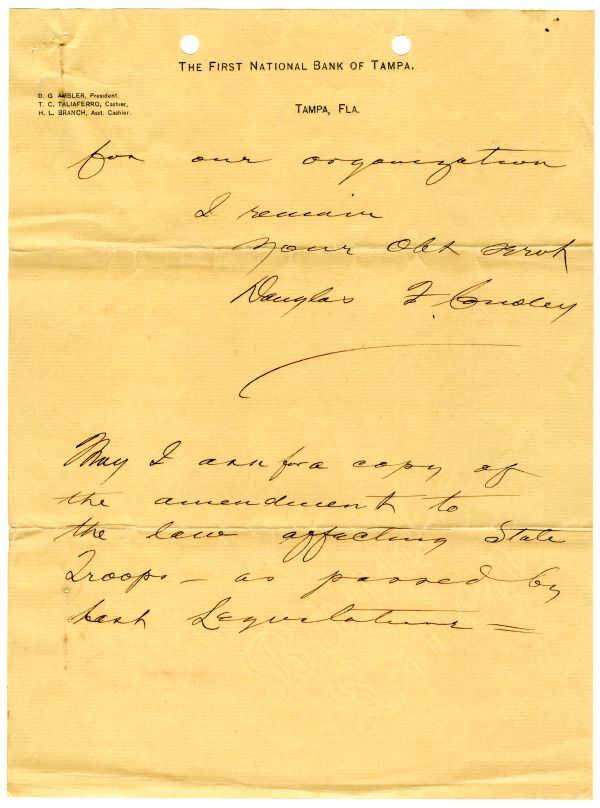 THE FIRST NATIONAL BANK OF TAMPA,
D. G. AMBLER, President.
T. C. TALIAFERRO, Cashier,
H. L. BRANCH, Asst. Cashier.
TAMPA, FLA.
for our organization
I remain
Your Obt servt
Douglas F. Conoley
May I ask for a copy of
the amendment to
the law affecting State
Troops – as passed by
last Legislature =